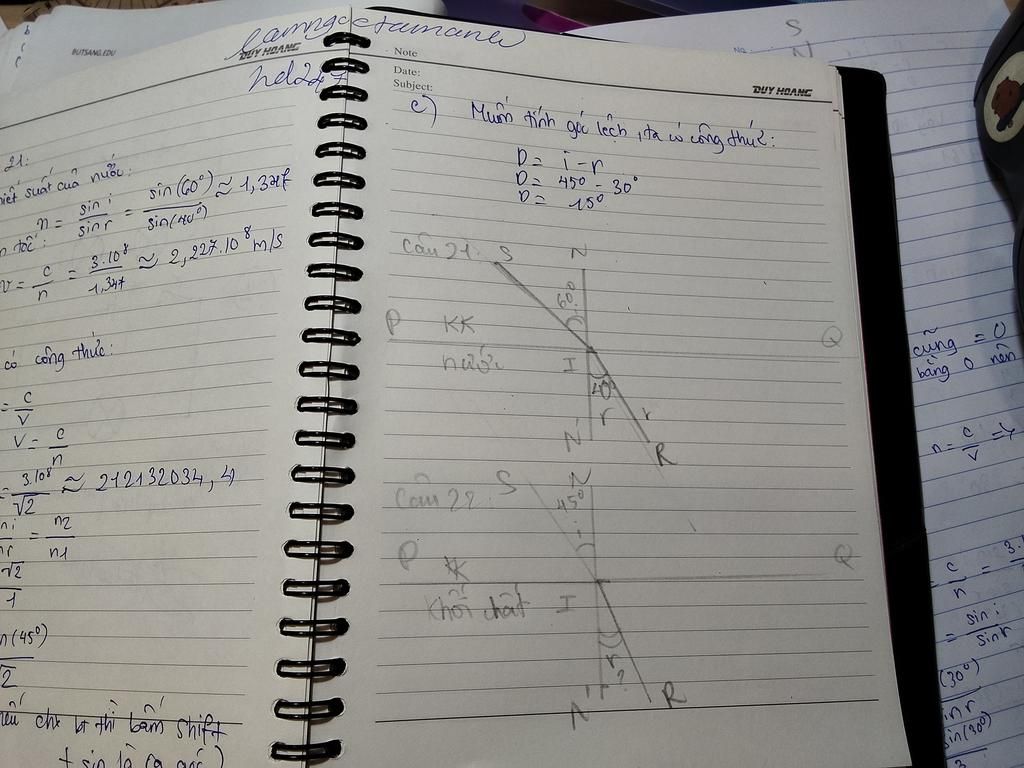 BUTSANG.EDU
DUY HOANG
hd247
21:
suất của nước:
n = sin i / sin r = sin(60°) / sin(40°) ≈ 1,347
tốc:
v = c / n = 3.10⁸ / 1,347 ≈ 2,227.10⁸ m/s
có công thức:
= c / v
v = c / n
= 3.10⁸ / √2 ≈ 212132034,4
= n2 / n1
√2 / 1
(45°)
2
thì bấm shift
+ sin là ra góc)
Note
Date:
Subject:
DUY HOANG
c) Muốn tính góc lệch, ta có công thức:
D = i - r
D = 45° - 30°
D = 15°
Câu 21: S N
60°
P KK Q
nước I
40°
r r
N' R
Câu 22: S N
45°
i
P KK Q
Khối chất I
r
?
N' R
S
N
cũng = 0
bằng 0 nên
n = c / v =>
c / n = 3.
= sin i / sin r
(30°)
sin r
sin(30°)